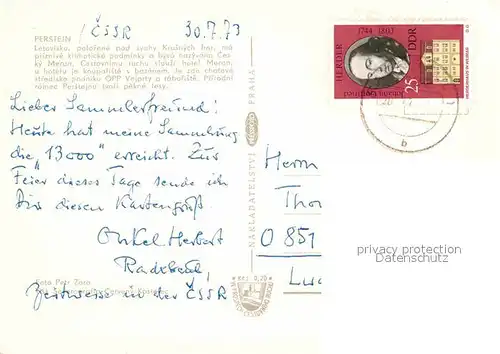 /ČSSR 30.7.73
PERSTEIN
Letovisko, položené nad svahy Krušných hor, má
příznivé klimatické podmínky a bývá nazýváno Čes-
ký Meran. Cestovnímu ruchu slouží hotel Meran,
u hotelu je koupaliště s bazénem. Je zde chatové
středisko podniku OPP Vejprty a rotoaviště. Přírodní
rámec Perštejna tvoří pěkné lesy.
Lieber Sammlerfreund!
Heute hat meine Sammlung
die "13000" erreicht. Zur
Feier dieses Tage sende ich
Dir diesen Kartengruß.
Onkel Herbert
Radebeul,
zeitweise in der ČSSR
Foto Petr Zora
NAKLADATELSTVÍ PRAHA
HERDER 1744 1803 DDR
Johann Gottfried
25
b
Herrn
Tho
O 851
Luc
privacy protection
oldthing.de